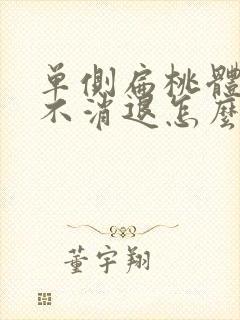 單側扁桃體
不消退怎麼
董宇翔